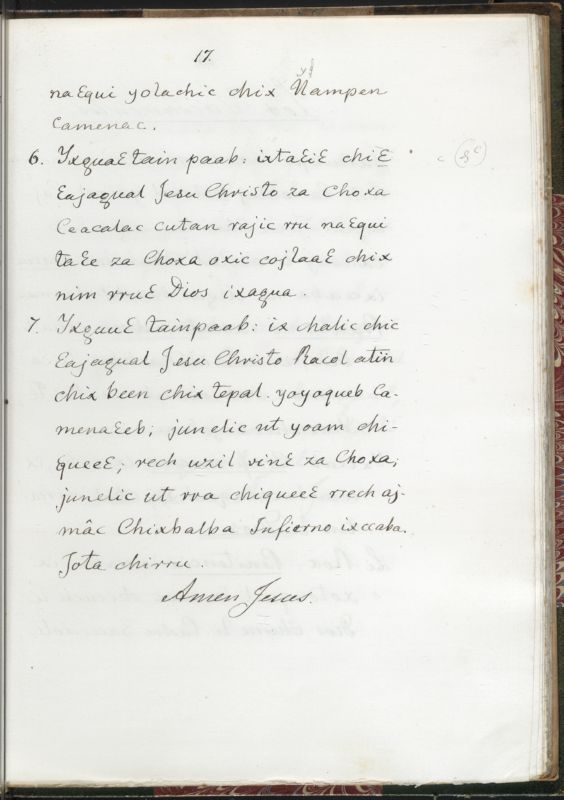 17.
naɛqui yolachic chix Nampen
Camenac.
6. Yxquaɛtain paab: ixtaɛiɛ chiɛ
ɛajaqual Jesu Christo za Choxa
Ceacalac cutan rajic rru naɛqui
taɛe za Choxa oxic cojlaaɛ chix
nim rruɛ Dios ixaqua.
7. Yxquuɛ tainpaab: ix chalic chic
ɛajaqual Jesu Christo Racol atin
chix been chix tepal. yoyoqueb Ca-
menaɛeb; junelic ut yoam chi-
queeɛ; rech uzil vinɛ za Choxa;
junelic ut rra chiqueeɛ rrech aj-
mâc Chixbalba Infierno ixccaba.
Jota chirru.
Amen Jesus.